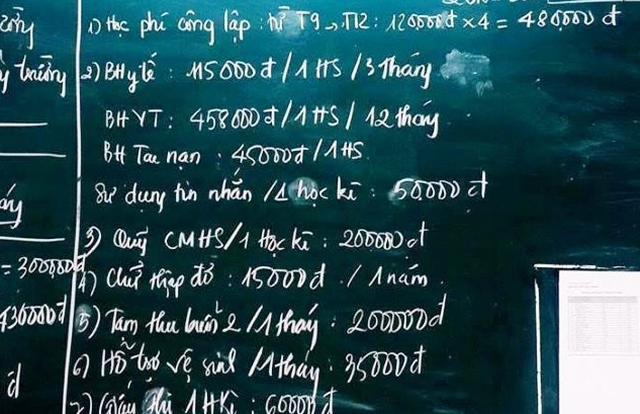 1) Học phí công lập : từ T9 → T12 : 120,000đ × 4 = 480,000 đ
2) BH y tế : 115 000đ / 1 HS / 3 Tháng
BHYT : 458 000đ / 1 HS / 12 tháng
BH Tai nạn : 45000đ / 1HS
Sử dụng tin nhắn / 1 học kì : 50.000 đ
3) Quỹ CMHS / 1 Học kì : 200000 đ
= 300000đ
4) Chữ thập đỏ : 15000đ / 1 năm
430000đ
5) Tạm thu buổi 2 / 1 tháng : 200000đ
6) Hỗ trợ vệ sinh / 1 tháng : 35000đ
đ
7) Giấy thi 1 HKì : 60000 đ